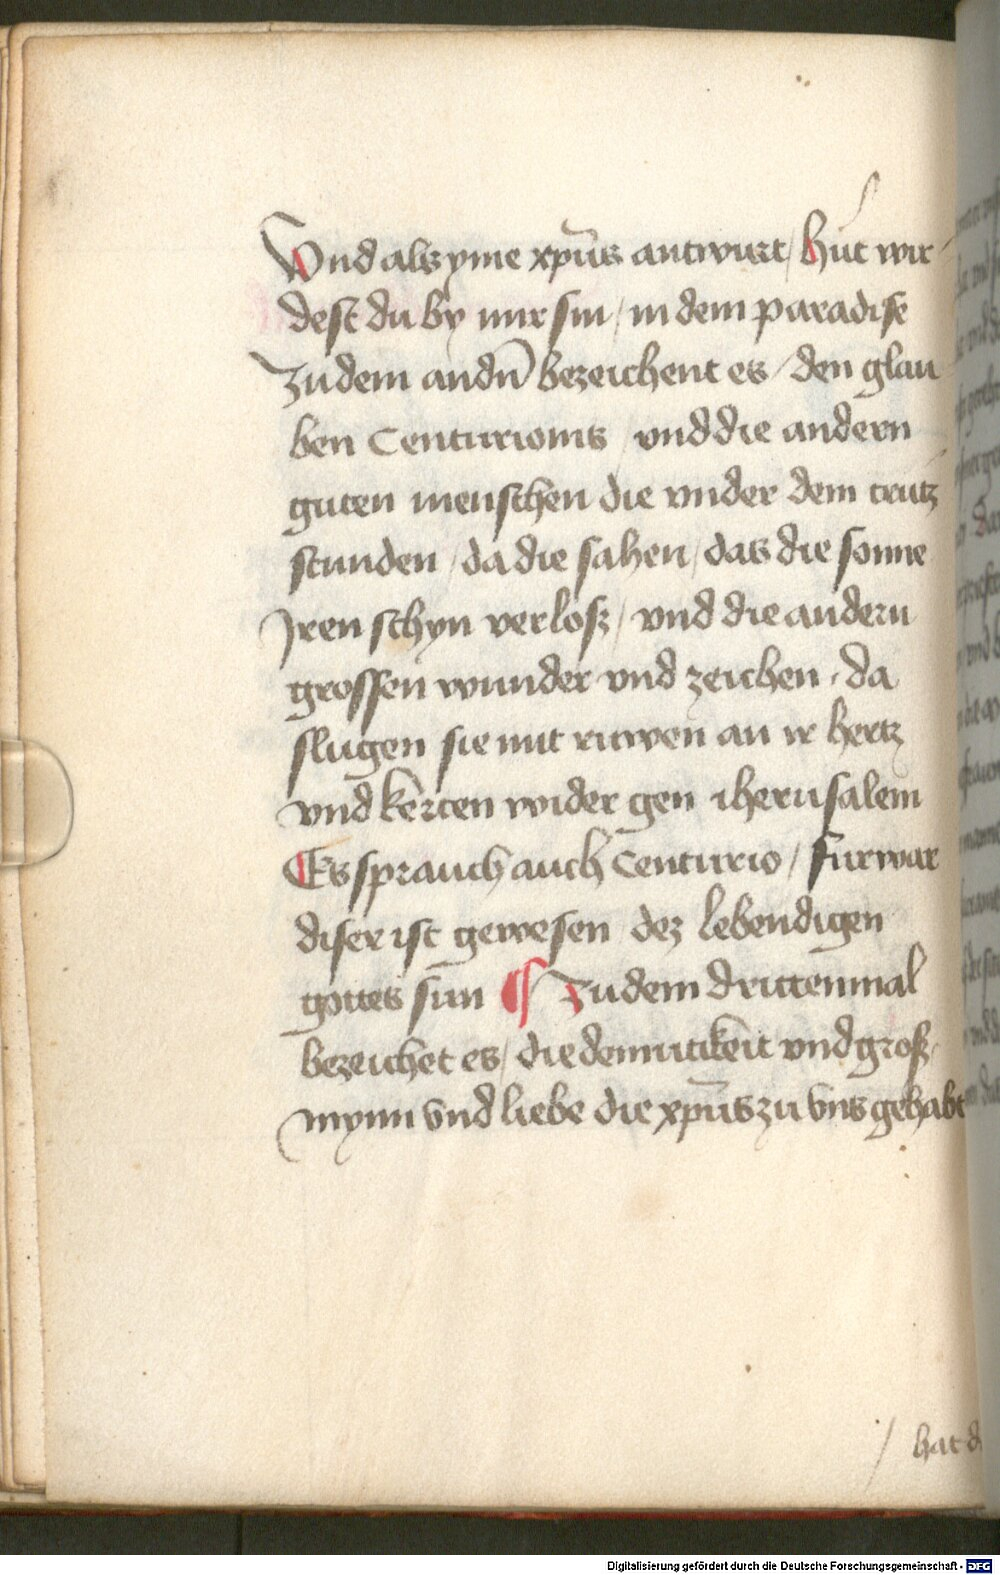 Vnd als yme xpūs antwurt / hüt wir
dest du by mir sin / in dem paradise
Zu dem andn̄ bezeichent es / den glau
ben Centurionis / vnd die andern
guten menschen die vnder dem crütz
stunden / da die sahen / das die sonne
Iren schyn verlosz / vnd die andern
grossen wunder vnd zeichen / da
slugen sie mit ruwen an ir hertz
vnd kerten wider gen iherusalem
Es sprauch auch Centurio / fürwar
diser ist gewesen dez lebendigen
gottes sun ¶ Zu dem drittenmal
bezeichet es / die demutikeit vnd grosz
mynn vnd liebe die xpūs zu vns gehabt
/ hat
Digitalisierung gefördert durch die Deutsche Forschungsgemeinschaft - DFG